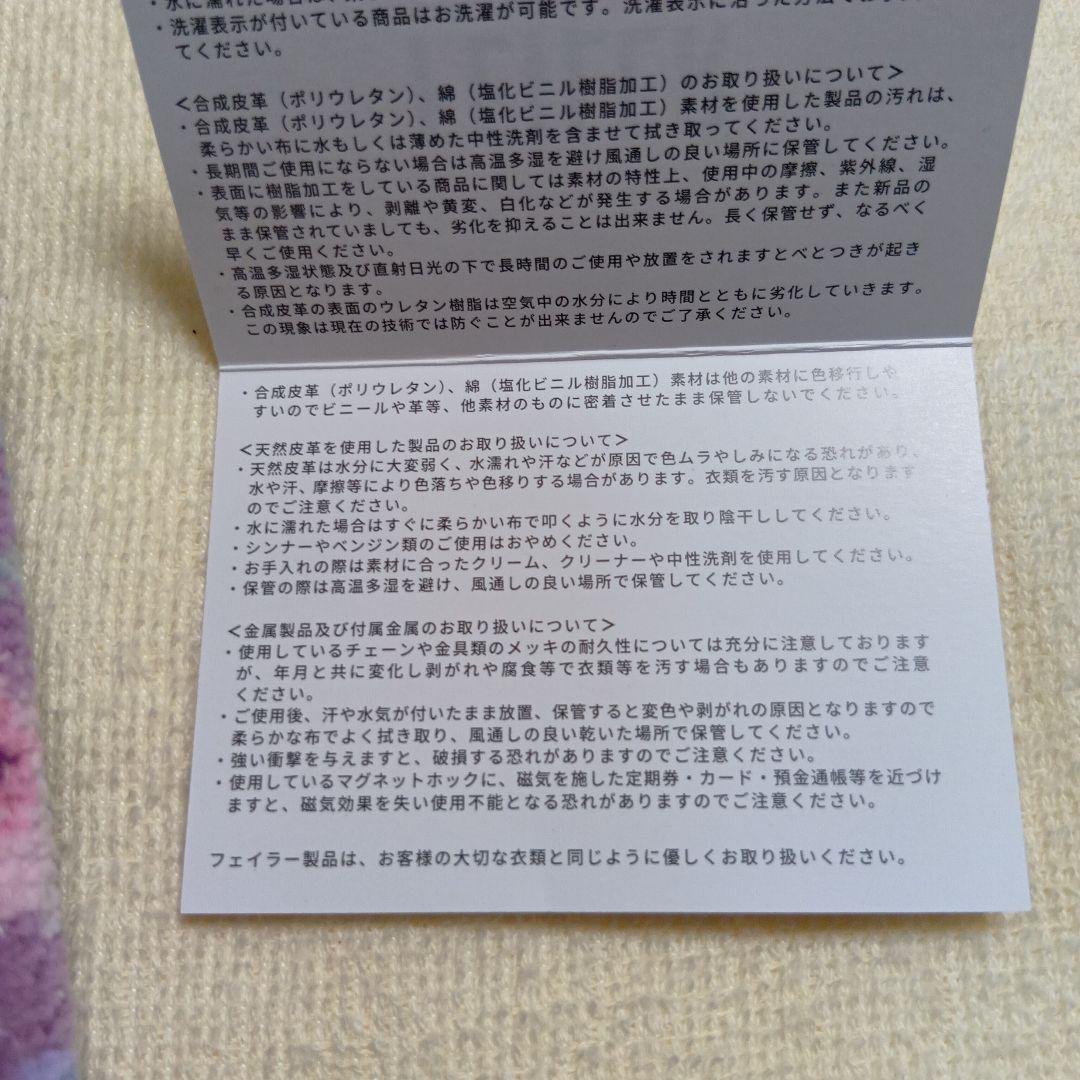 ・洗濯表示が付いている商品はお洗濯が可能です。洗濯表示に沿った方法で
てください。
＜合成皮革（ポリウレタン）、綿（塩化ビニル樹脂加工）のお取り扱いについて＞
・合成皮革（ポリウレタン）、綿（塩化ビニル樹脂加工）素材を使用した製品の汚れは、
柔らかい布に水もしくは薄めた中性洗剤を含ませて拭き取ってください。
・長期間ご使用にならない場合は高温多湿を避け風通しの良い場所に保管してください。
・表面に樹脂加工をしている商品に関しては素材の特性上、使用中の摩擦、紫外線、湿
気等の影響により、剥離や黄変、白化などが発生する場合があります。また新品の
まま保管されていましても、劣化を抑えることは出来ません。長く保管せず、なるべく
早くご使用ください。
・高温多湿状態及び直射日光の下で長時間のご使用や放置をされますとべとつきが起き
る原因となります。
・合成皮革の表面のウレタン樹脂は空気中の水分により時間とともに劣化していきます。
この現象は現在の技術では防ぐことが出来ませんのでご了承ください。
・合成皮革（ポリウレタン）、綿（塩化ビニル樹脂加工）素材は他の素材に色移行しや
すいのでビニールや革等、他素材のものに密着させたまま保管しないでください。
＜天然皮革を使用した製品のお取り扱いについて＞
・天然皮革は水分に大変弱く、水濡れや汗などが原因で色ムラやしみになる恐れがあり、
水や汗、摩擦等により色落ちや色移りする場合があります。衣類を汚す原因となります
のでご注意ください。
・水に濡れた場合はすぐに柔らかい布で叩くように水分を取り陰干ししてください。
・シンナーやベンジン類のご使用はおやめください。
・お手入れの際は素材に合ったクリーム、クリーナーや中性洗剤を使用してください。
・保管の際は高温多湿を避け、風通しの良い場所で保管してください。
＜金属製品及び付属金属のお取り扱いについて＞
・使用しているチェーンや金具類のメッキの耐久性については充分に注意しております
が、年月と共に変化し剥がれや腐食等で衣類等を汚す場合もありますのでご注意
ください。
・ご使用後、汗や水気が付いたまま放置、保管すると変色や剥がれの原因となりますので
柔らかな布でよく拭き取り、風通しの良い乾いた場所で保管してください。
・強い衝撃を与えますと、破損する恐れがありますのでご注意ください。
・使用しているマグネットホックに、磁気を施した定期券・カード・預金通帳等を近づけ
ますと、磁気効果を失い使用不能となる恐れがありますのでご注意ください。
フェイラー製品は、お客様の大切な衣類と同じように優しくお取り扱いください。